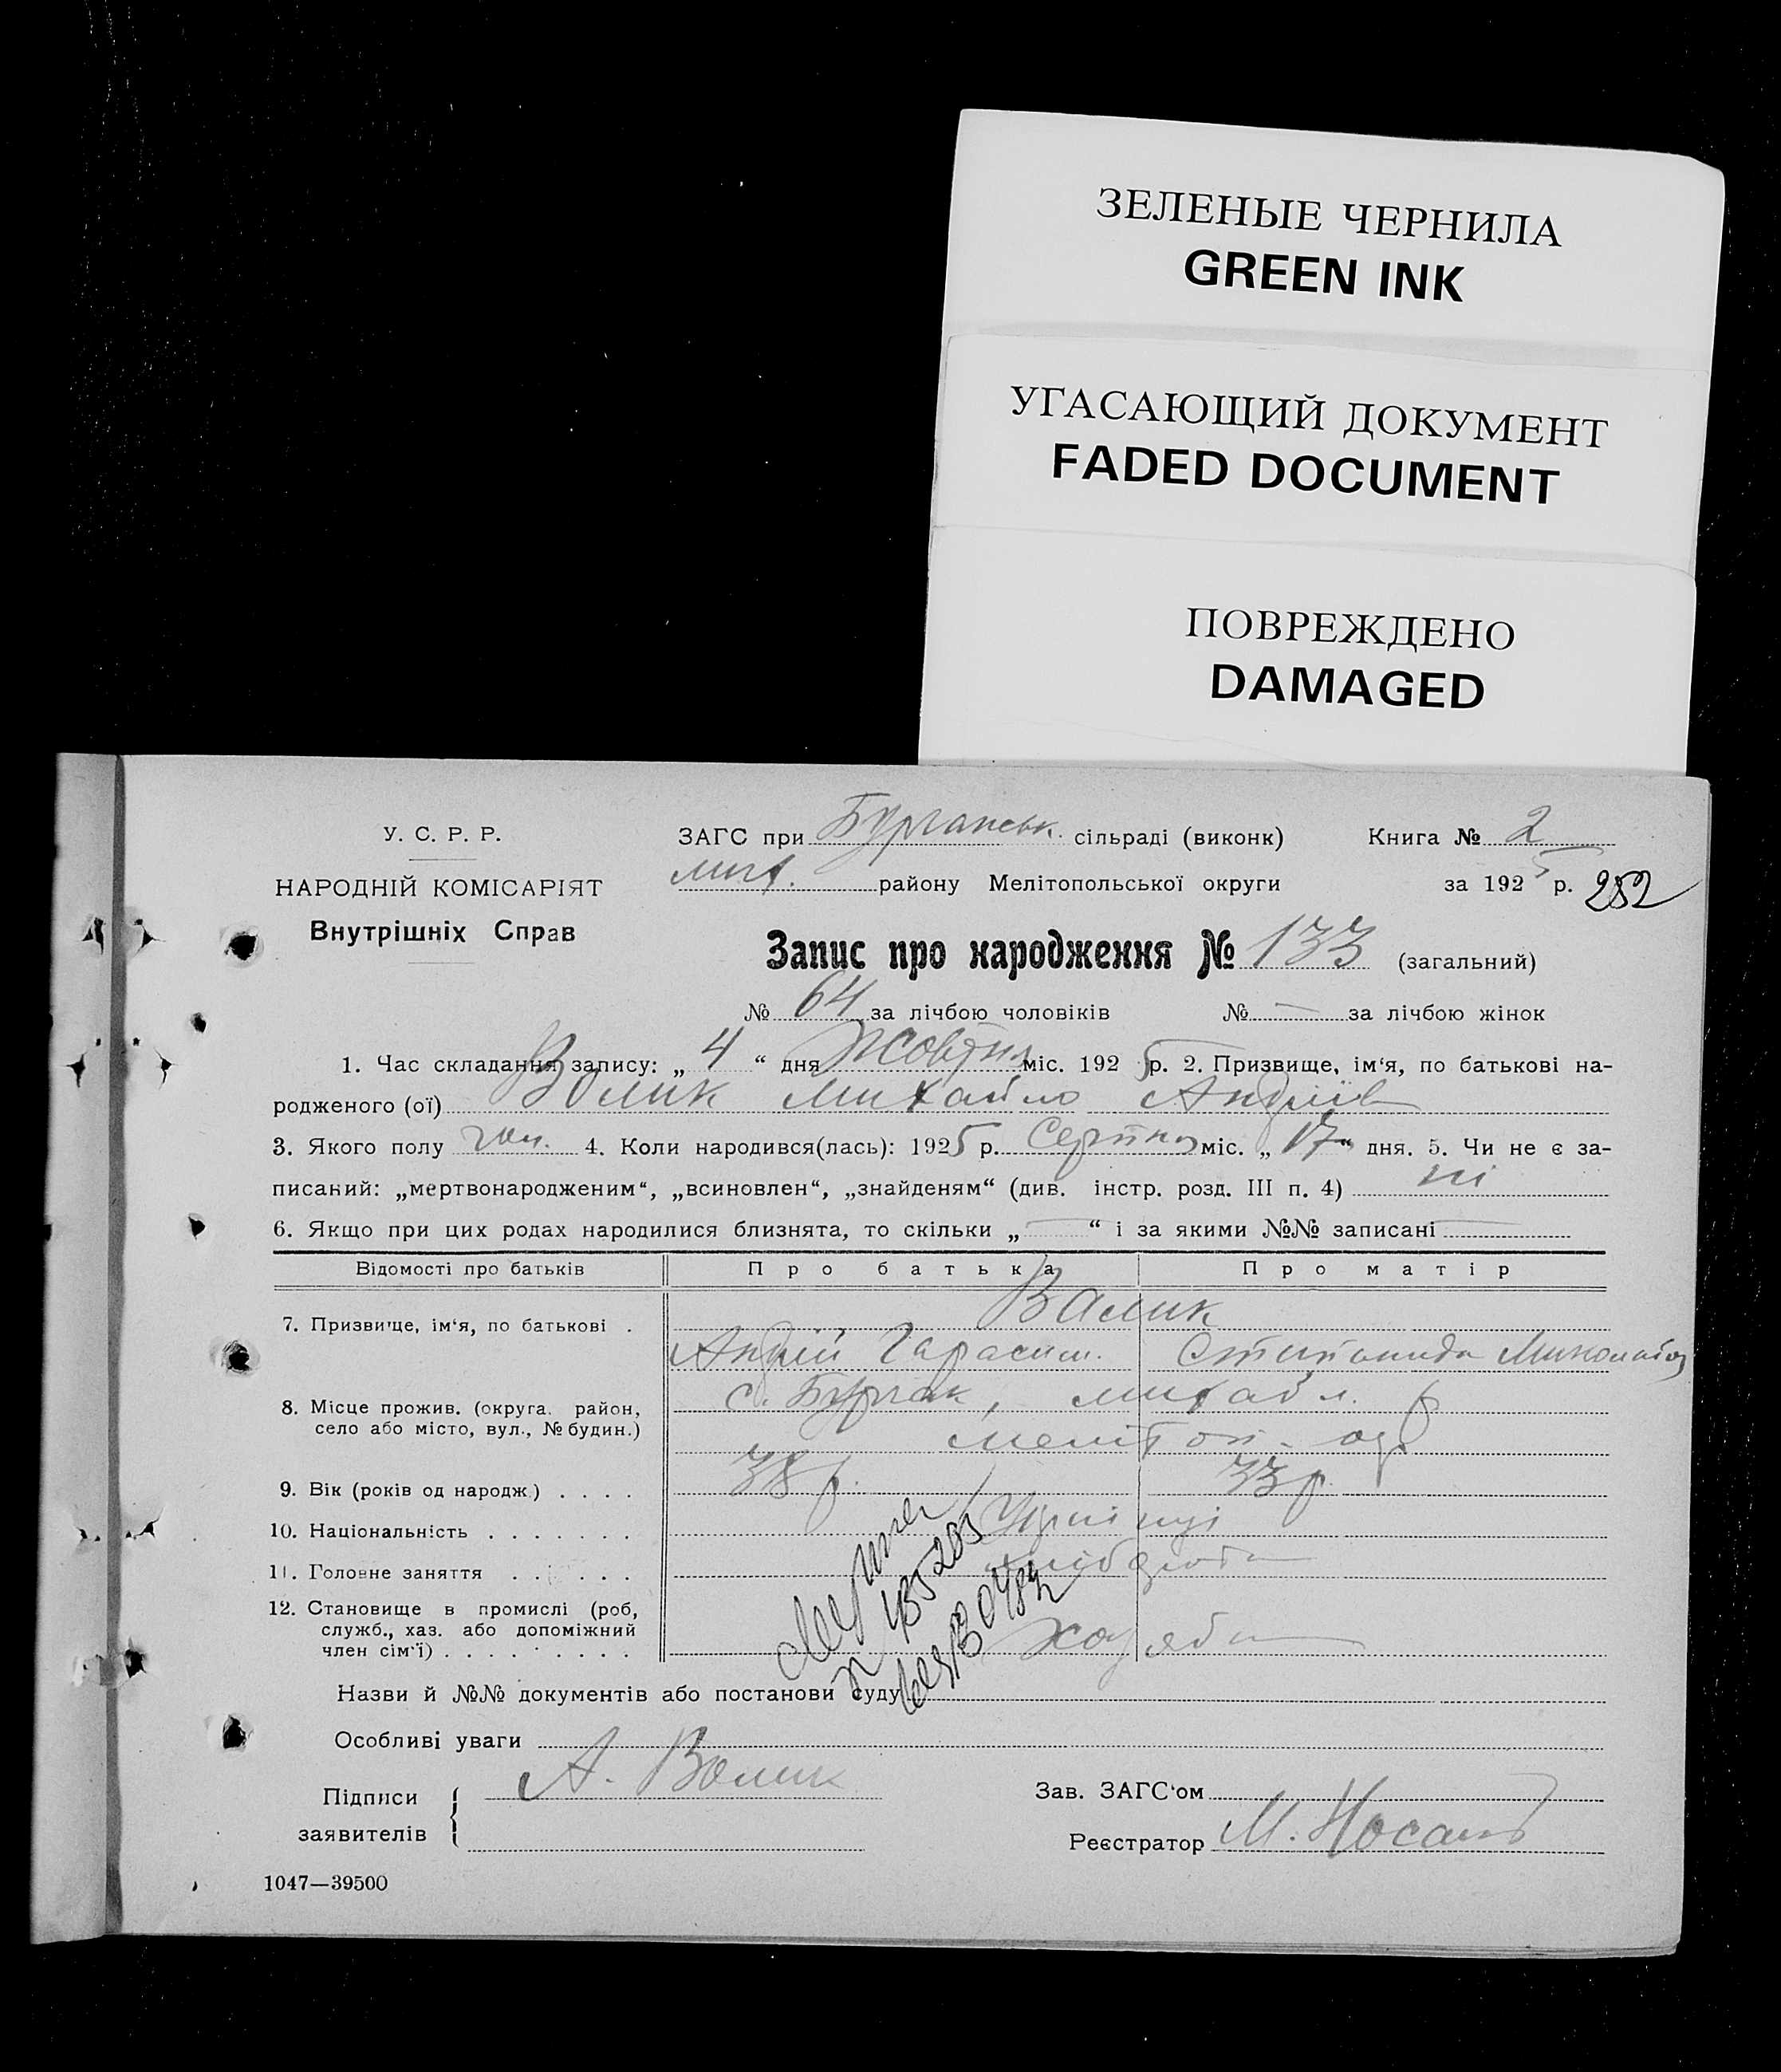 ЗЕЛЕНЫЕ ЧЕРНИЛА
GREEN INK
УГАСАЮЩИЙ ДОКУМЕНТ
FADED DOCUMENT
ПОВРЕЖДЕНО
DAMAGED
У. С. Р. Р.
НАРОДНІЙ КОМІСАРІЯТ
Внутрішніх Справ
ЗАГС при сільраді (виконк) Книга № 2
мих. району Мелітопольської округи за 1925 р. 252
Запис про народження № 133 (загальний)
№ 64 за лічбою чоловіків № — за лічбою жінок
1. Час складання запису: „ 4 “ дня Жовтня міс. 1925 р. 2. Призвище, ім‘я, по батькові на-
родженого (ої) Волик Михайло Андріїв
3. Якого полу чол. 4. Коли народився(лась): 1925 р. Серпня міс. „ 17 “ дня. 5. Чи не є за-
писаний: „мертвонародженим“, „всиновлен“, „знайденям“ (див. інстр. розд. III п. 4) ні
6. Якщо при цих родах народилися близнята, то скільки „ — “ і за якими №№ записані —
Відомості про батьків Про батька Про матір
7. Призвище, ім‘я, по батькові . Волик
Андрій Гарасим. Степанида Миколаїв
8. Місце прожив. (округа. район, село або місто, вул., № будин.) с. Бургак, михайл. р
меліт оп. окр.
9. Вік (років од народж.) . . . . 38 р. 33 р.
10. Національність . . . . . . . Українці
11. Головне заняття . . . . . . хлібороби
12. Становище в промислі (роб, служб., хаз. або допоміжний член сім‘ї) . . . . . . . .
Назви й №№ документів або постанови суду
Особливі уваги
Підписи заявителів А. Волик
Зав. ЗАГС‘ом
Реєстратор М. Носань
1047—39500